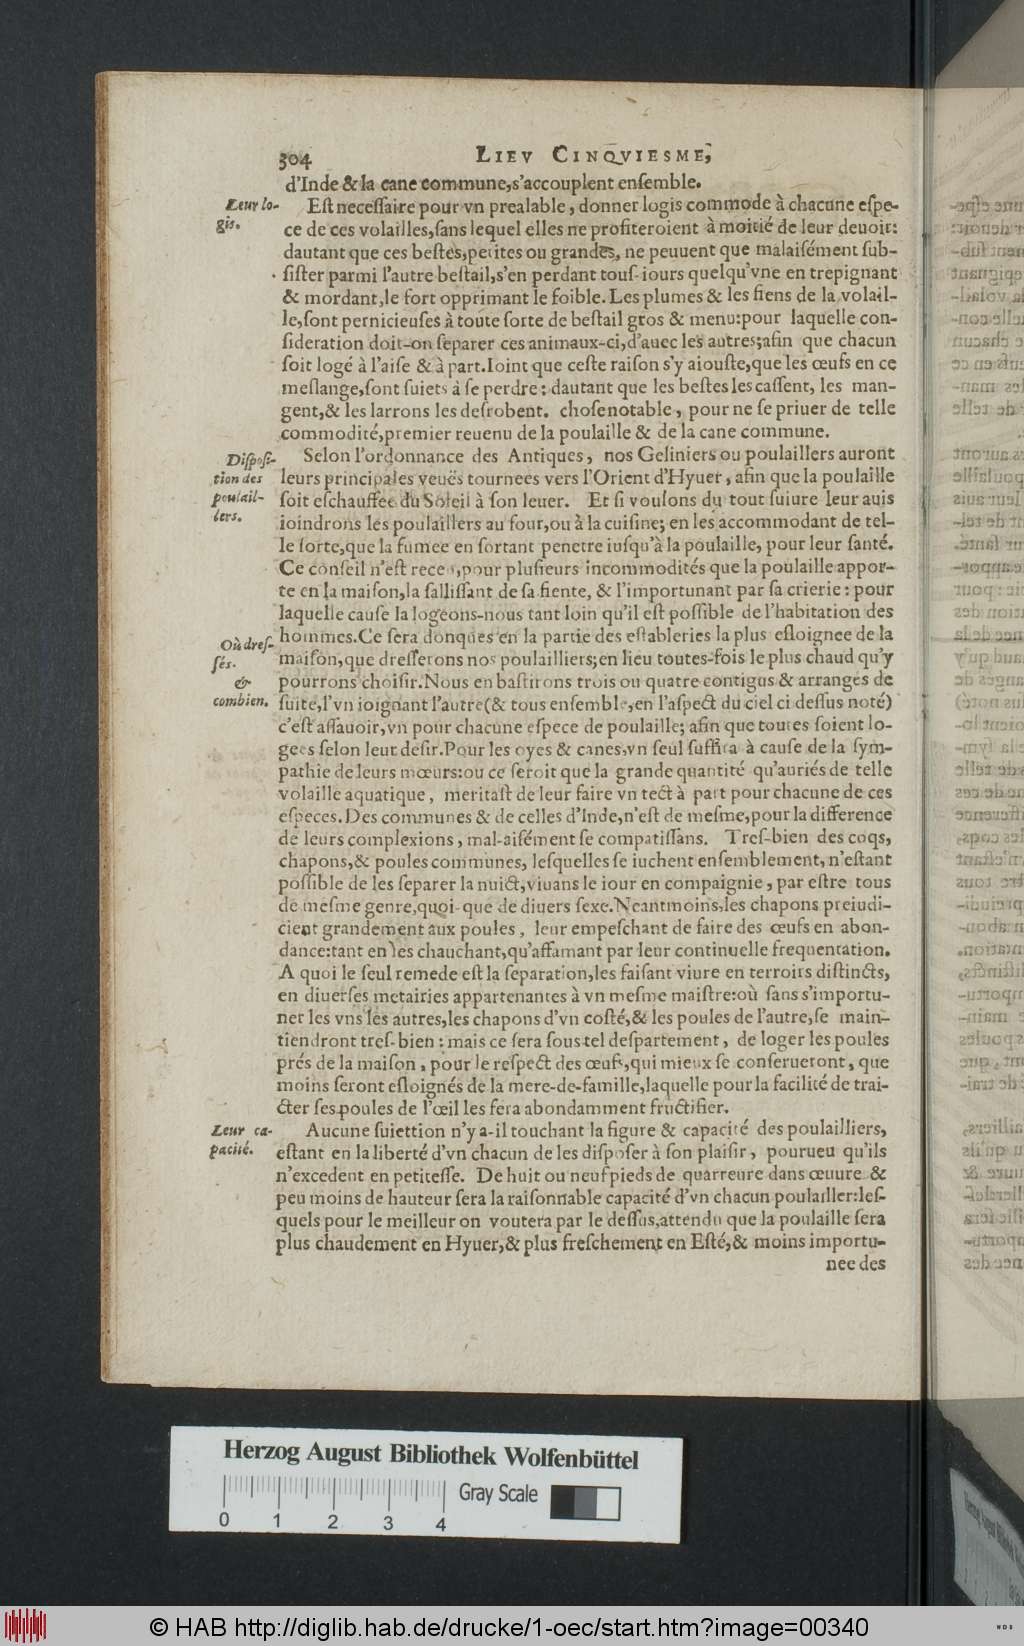 304 LIEV CINQVIESME,
d'Inde & la cane commune, s'accouplent enſemble.
Leur lo-
gis.
Eſt neceſſaire pour vn prealable, donner logis commode à chacune eſpe-
ce de ces volailles, ſans lequel elles ne profiteroient à moitié de leur deuoir:
dautant que ces beſtes, petites ou grandes, ne peuuent que malaiſément ſub-
ſiſter parmi l'autre beſtail, s'en perdant touſ-iours quelqu'vne en trepignant
& mordant, le fort opprimant le foible. Les plumes & les fiens de la volail-
le, ſont pernicieuſes à toute ſorte de beſtail gros & menu: pour laquelle con-
ſideration doit-on ſeparer ces animaux-ci, d'auec les autres; afin que chacun
ſoit logé à l'aiſe & à part. Ioint que ceſte raiſon s'y aiouſte, que les œufs en ce
meſlange, ſont ſuiets à ſe perdre: dautant que les beſtes les caſſent, les man-
gent, & les larrons les deſrobent. choſe notable, pour ne ſe priuer de telle
commodité, premier reuenu de la poulaille & de la cane commune.
Diſpoſi-
tion des
poulail-
lers.
Selon l'ordonnance des Antiques, nos Geliniers ou poulaillers auront
leurs principales veuës tournees vers l'Orient d'Hyuer, afin que la poulaille
ſoit eſchauffee du Soleil à ſon leuer. Et ſi voulons du tout ſuiure leur auis
ioindrons les poulaillers au four, ou à la cuiſine; en les accommodant de tel-
le ſorte, que la fumee en ſortant penetre iuſqu'à la poulaille, pour leur ſanté.
Ce conſeil n'eſt receu, pour pluſieurs incommodités que la poulaille appor-
te en la maiſon, la ſalliſſant de ſa fiente, & l'importunant par ſa crierie: pour
laquelle cauſe la logeons-nous tant loin qu'il eſt poſſible de l'habitation des
Où dreſ-
ſés.
&
combien.
hommes. Ce ſera donques en la partie des eſtableries la plus eſloignee de la
maiſon, que dreſſerons nos poulailliers; en lieu toutes-fois le plus chaud qu'y
pourrons choiſir. Nous en baſtirons trois ou quatre contigus & arrangés de
ſuite, l'vn ioignant l'autre (& tous enſemble, en l'aſpect du ciel ci deſſus noté)
c'eſt aſſauoir, vn pour chacune eſpece de poulaille; afin que toutes ſoient lo-
gees ſelon leur deſir. Pour les oyes & canes, vn ſeul ſuffira à cauſe de la ſym-
pathie de leurs mœurs: ou ce ſeroit que la grande quantité qu'auriés de telle
volaille aquatique, meritaſt de leur faire vn tect à part pour chacune de ces
eſpeces. Des communes & de celles d'Inde, n'eſt de meſme, pour la difference
de leurs complexions, mal-aiſément ſe compatiſſans. Treſ-bien des coqs,
chapons, & poules communes, leſquelles ſe iuchent enſemblement, n'eſtant
poſſible de les ſeparer la nuict, viuans le iour en compaignie, par eſtre tous
de meſme genre, quoi-que de diuers ſexe. Neantmoins, les chapons preiudi-
cient grandement aux poules, leur empeſchant de faire des œufs en abon-
dance: tant en les chauchant, qu'affamant par leur continuelle frequentation.
A quoi le ſeul remede eſt la ſeparation, les faiſant viure en terroirs diſtincts,
en diuerſes metairies appartenantes à vn meſme maiſtre: où ſans s'importu-
ner les vns les autres, les chapons d'vn coſté, & les poules de l'autre, ſe main-
tiendront treſ-bien: mais ce ſera ſous tel deſpartement, de loger les poules
prés de la maiſon, pour le reſpect des œufs, qui mieux ſe conſerueront, que
moins ſeront eſloignés de la mere-de-famille, laquelle pour la facilité de trai-
cter ſes poules de l'œil les fera abondamment fructifier.
Leur ca-
pacité.
Aucune ſuiettion n'y a-il touchant la figure & capacité des poulailliers,
eſtant en la liberté d'vn chacun de les diſpoſer à ſon plaiſir, pourueu qu'ils
n'excedent en petiteſſe. De huit ou neuf pieds de quarreure dans œuure &
peu moins de hauteur ſera la raiſonnable capacité d'vn chacun poulailler: leſ-
quels pour le meilleur on voutera par le deſſus, attendu que la poulaille ſera
plus chaudement en Hyuer, & plus freſchement en Eſté, & moins importu-
nee des
Herzog August Bibliothek Wolfenbüttel
Gray Scale
0 1 2 3 4
© HAB http://diglib.hab.de/drucke/1-oec/start.htm?image=00340